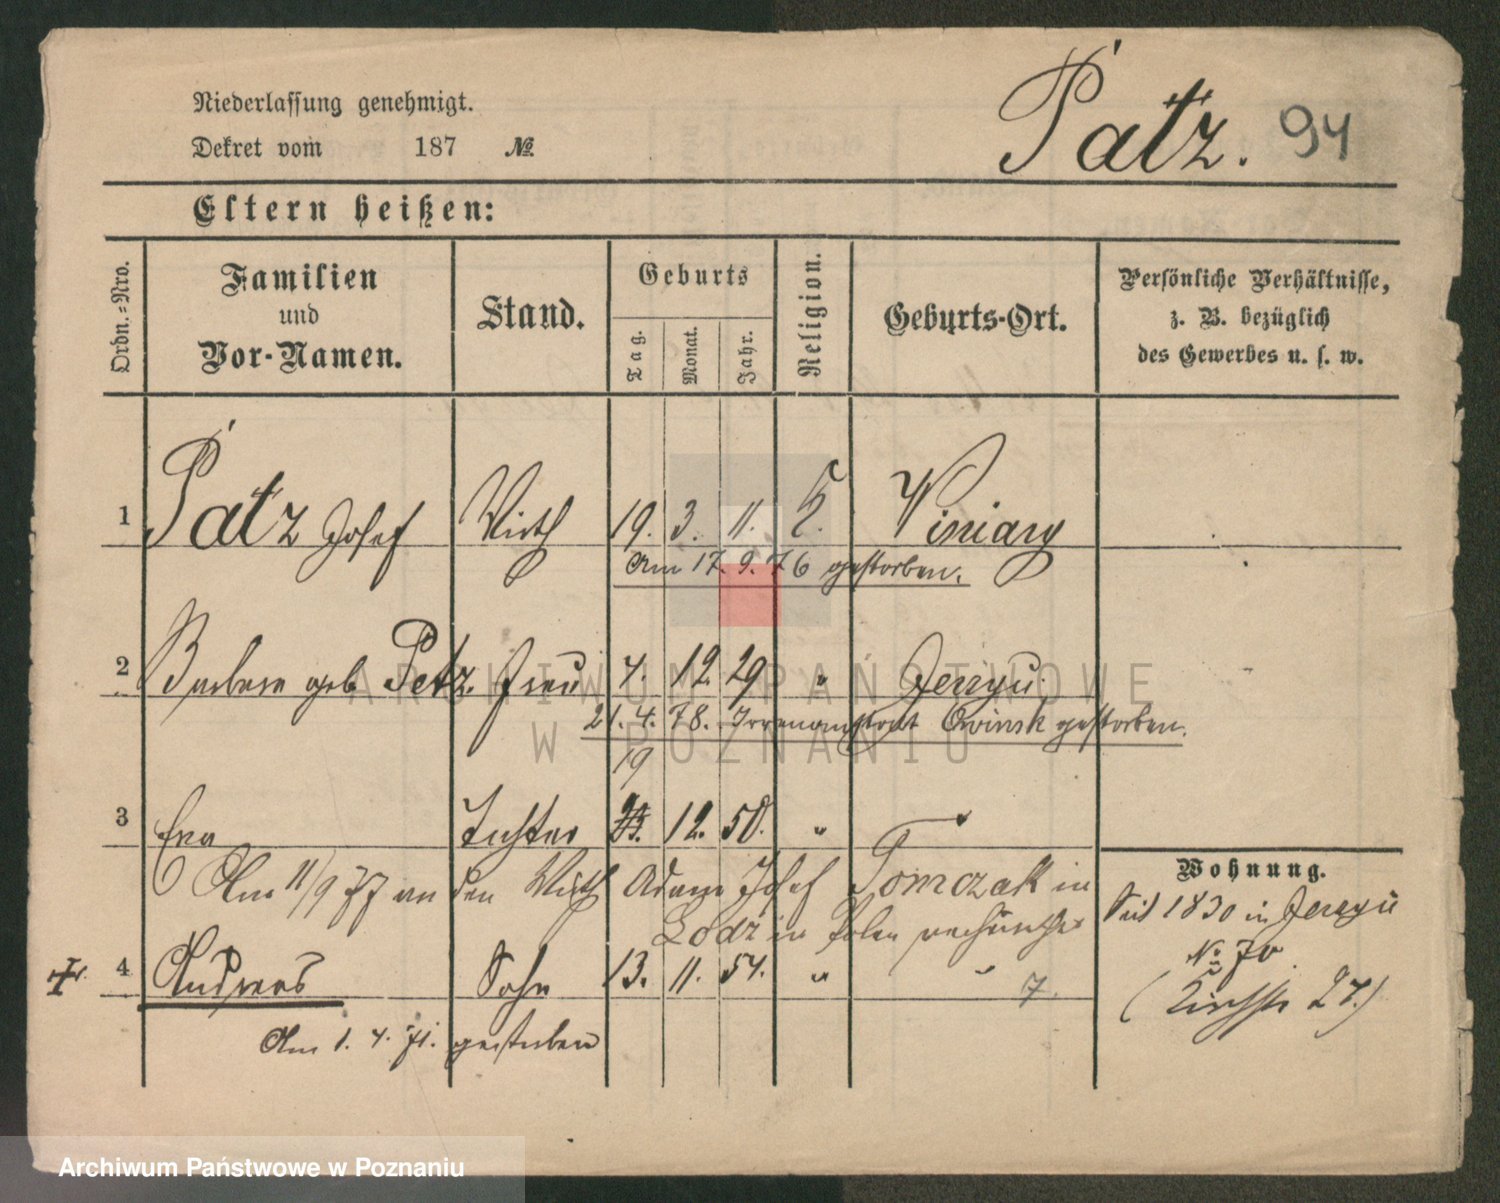 Niederlassung genehmigt.
Dekret vom 187 №
Patz. 94
Eltern heißen:
Ordn.-Nro.
Familien und Vor-Namen.
Stand.
Geburts
Tag.
Monat.
Jahr.
Religion.
Geburts-Ort.
Persönliche Verhältnisse,
z. B. bezüglich
des Gewerbes u. s. w.
1 Patz Josef Wirth 19. 3. 11. K. Winiary
Am 17. 9. 76 gestorben.
2 Barbara geb Petz. Frau 4. 12. 29 " Jerzyu.
21. 4. 78. Irrenanstalt Owinsk gestorben.
19
3 Eva Tochter 12. 50. " "
Am 11/9 77 an den Wirth Adam Josef Tomczak in
Lodz in Polen
Wohnung.
Seit 1830 in Jerzyu
№ 70
(Kirchstr 27.)
4 Andreas Sohn 13. 11. 54. " " 7.
Am 1. 4. 71. gestorben
ARCHIWUM PAŃSTWOWE
W POZNANIU
Archiwum Państwowe w Poznaniu